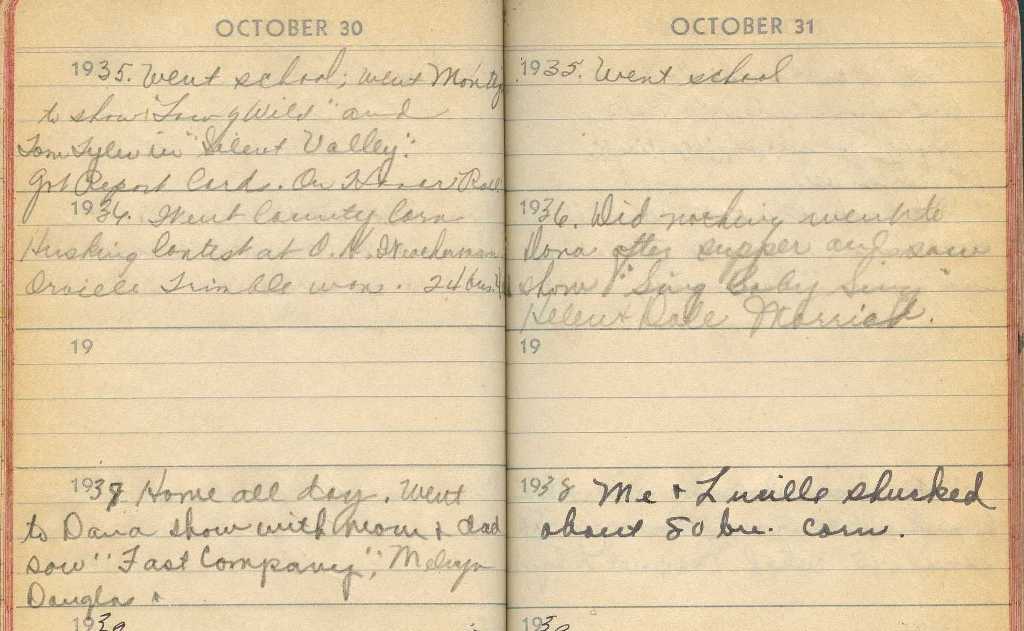 OCTOBER 30
1935. Went school; went Monday
to show "
Tom Tyler in "Silent Valley".
Got Report Cards. On Honor Roll
1936. Went County Corn
Husking Contest at O. H.
Orville Trimble won. 24 bu.
19
1938 Home all day. Went
to Dana show with mom + dad
saw "Fast Company", Melvyn
Douglas +
1939
OCTOBER 31
1935. Went school
1936. Did nothing went to
Dana after supper and saw
show "Sing Baby Sing"
Helen + Dale Married.
19
1938 Me + Lucille shucked
about 80 bu. corn.
1939